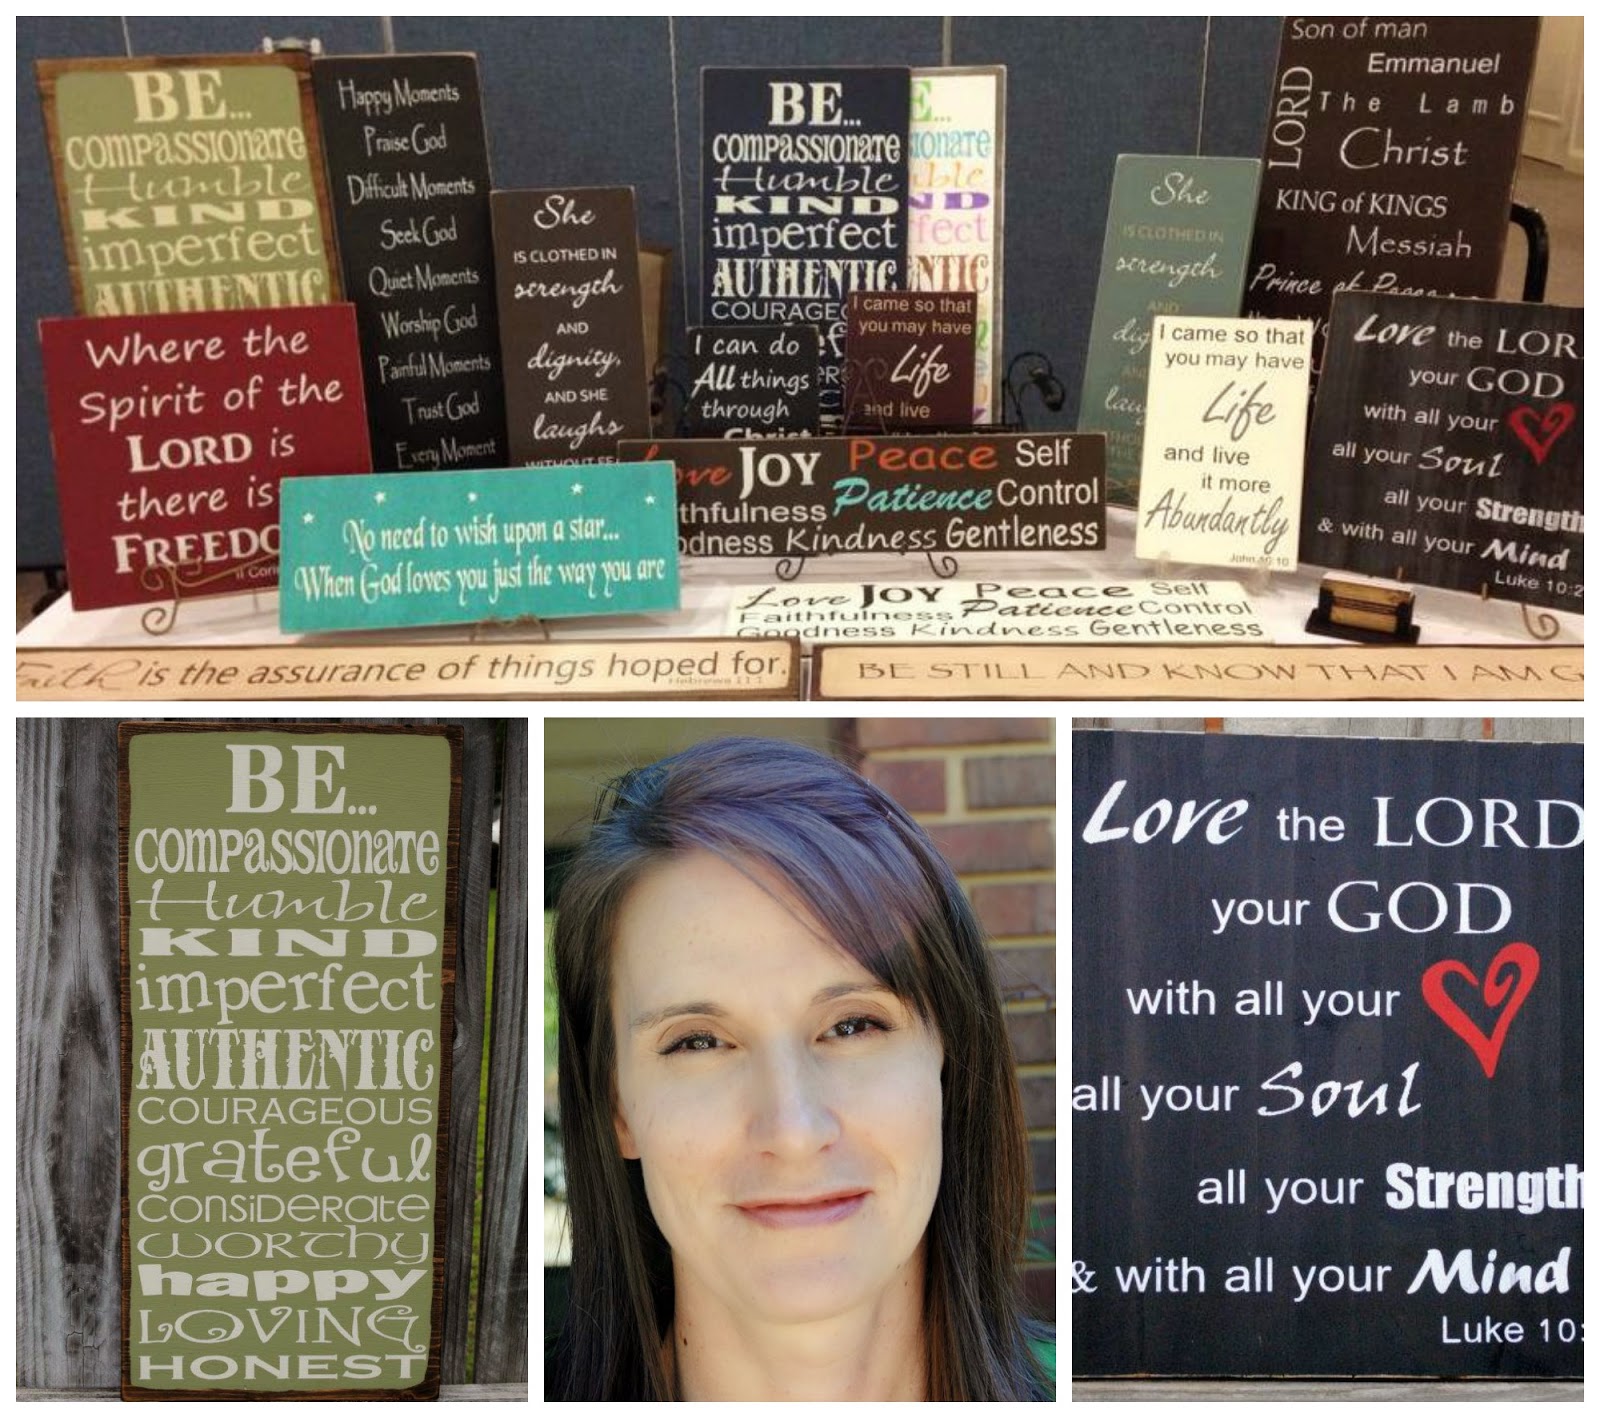 BE...
COMPASSIONATE
Humble
KIND
imperfect
AUTHENTIC
Happy Moments
Praise God
Difficult Moments
Seek God
Quiet Moments
Worship God
Painful Moments
Trust God
Every Moment
She
IS CLOTHED IN
strength
AND
dignity,
AND SHE
laughs
Where the
Spirit of the
LORD is
there is
FREEDO
No need to wish upon a star...
When God loves you just the way you are
BE...
COMPASSIONATE
Humble
KIND
imperfect
AUTHENTIC
I can do
All things
through
Christ
I came so that
you may have
Life
and live
Love JOY Peace Self
Patience Control
Kindness Gentleness
Love JOY Peace Self
Faithfulness Patience Control
Goodness Kindness Gentleness
She
IS CLOTHED IN
strength
AND
Son of man
Emmanuel
LORD
The Lamb
Christ
KING of KINGS
Messiah
Prince of Peace
I came so that
you may have
Life
and live
it more
Abundantly
John 10:10
Love the LOR
your GOD
with all your
all your Soul
all your Strength
& with all your Mind
Luke 10:2
Faith is the assurance of things hoped for.
Hebrews 11:1
BE STILL AND KNOW THAT I AM G
BE...
COMPASSIONATE
Humble
KIND
imperfect
AUTHENTIC
COURAGEOUS
grateful
CONSIDERATE
WORTHY
happy
LOVING
HONEST
Love the LORD
your GOD
with all your
all your Soul
all your Strength
& with all your Mind
Luke 10: